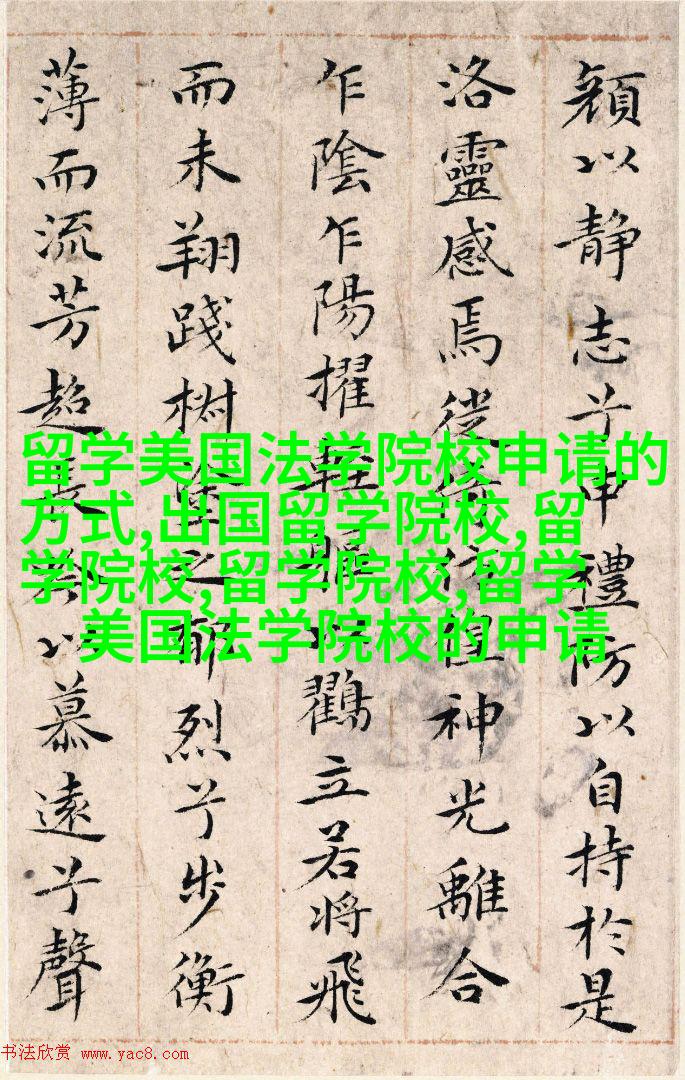 顔以静志兮申禮防以自持於是
洛靈感焉徙神光離合
乍陰乍陽擢輕以鸛立若將飛
而未翔踐樹之烈兮步衡
薄而流芳超長以慕遠兮聲
留学美国法学院校申请的
方式,出国留学院校,留
学院校,留学院校,留学
美国法学院校的申请
书法欣赏 www.yac8.com